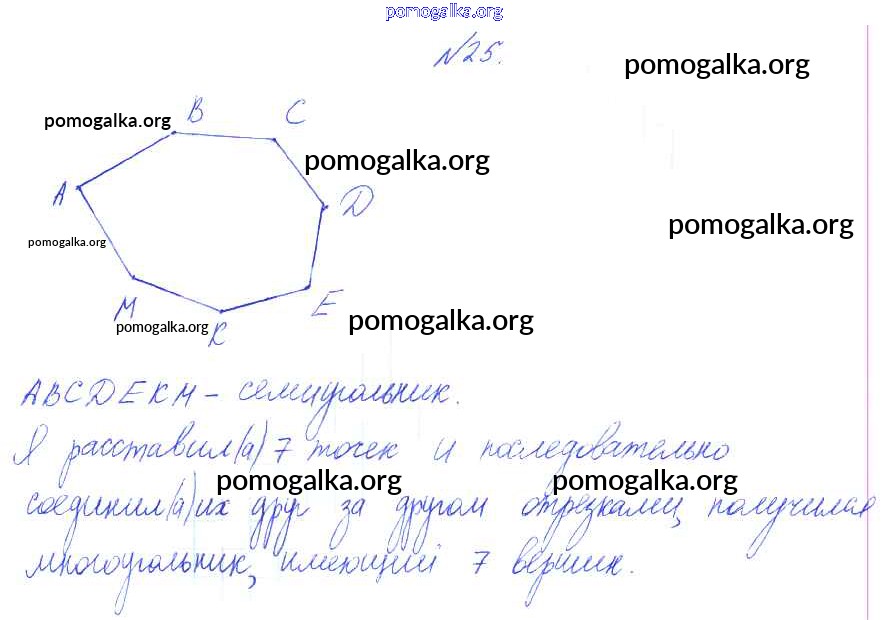 pomogalka.org
№25.
pomogalka.org
B
C
pomogalka.org
pomogalka.org
A
D
pomogalka.org
pomogalka.org
M
E
pomogalka.org
K
pomogalka.org
ABCDEKM – семиугольник.
Я расставил(а) 7 точек и последовательно
pomogalka.org
pomogalka.org
соединил(а) их друг за другом отрезками, получился
многоугольник, имеющий 7 вершин.